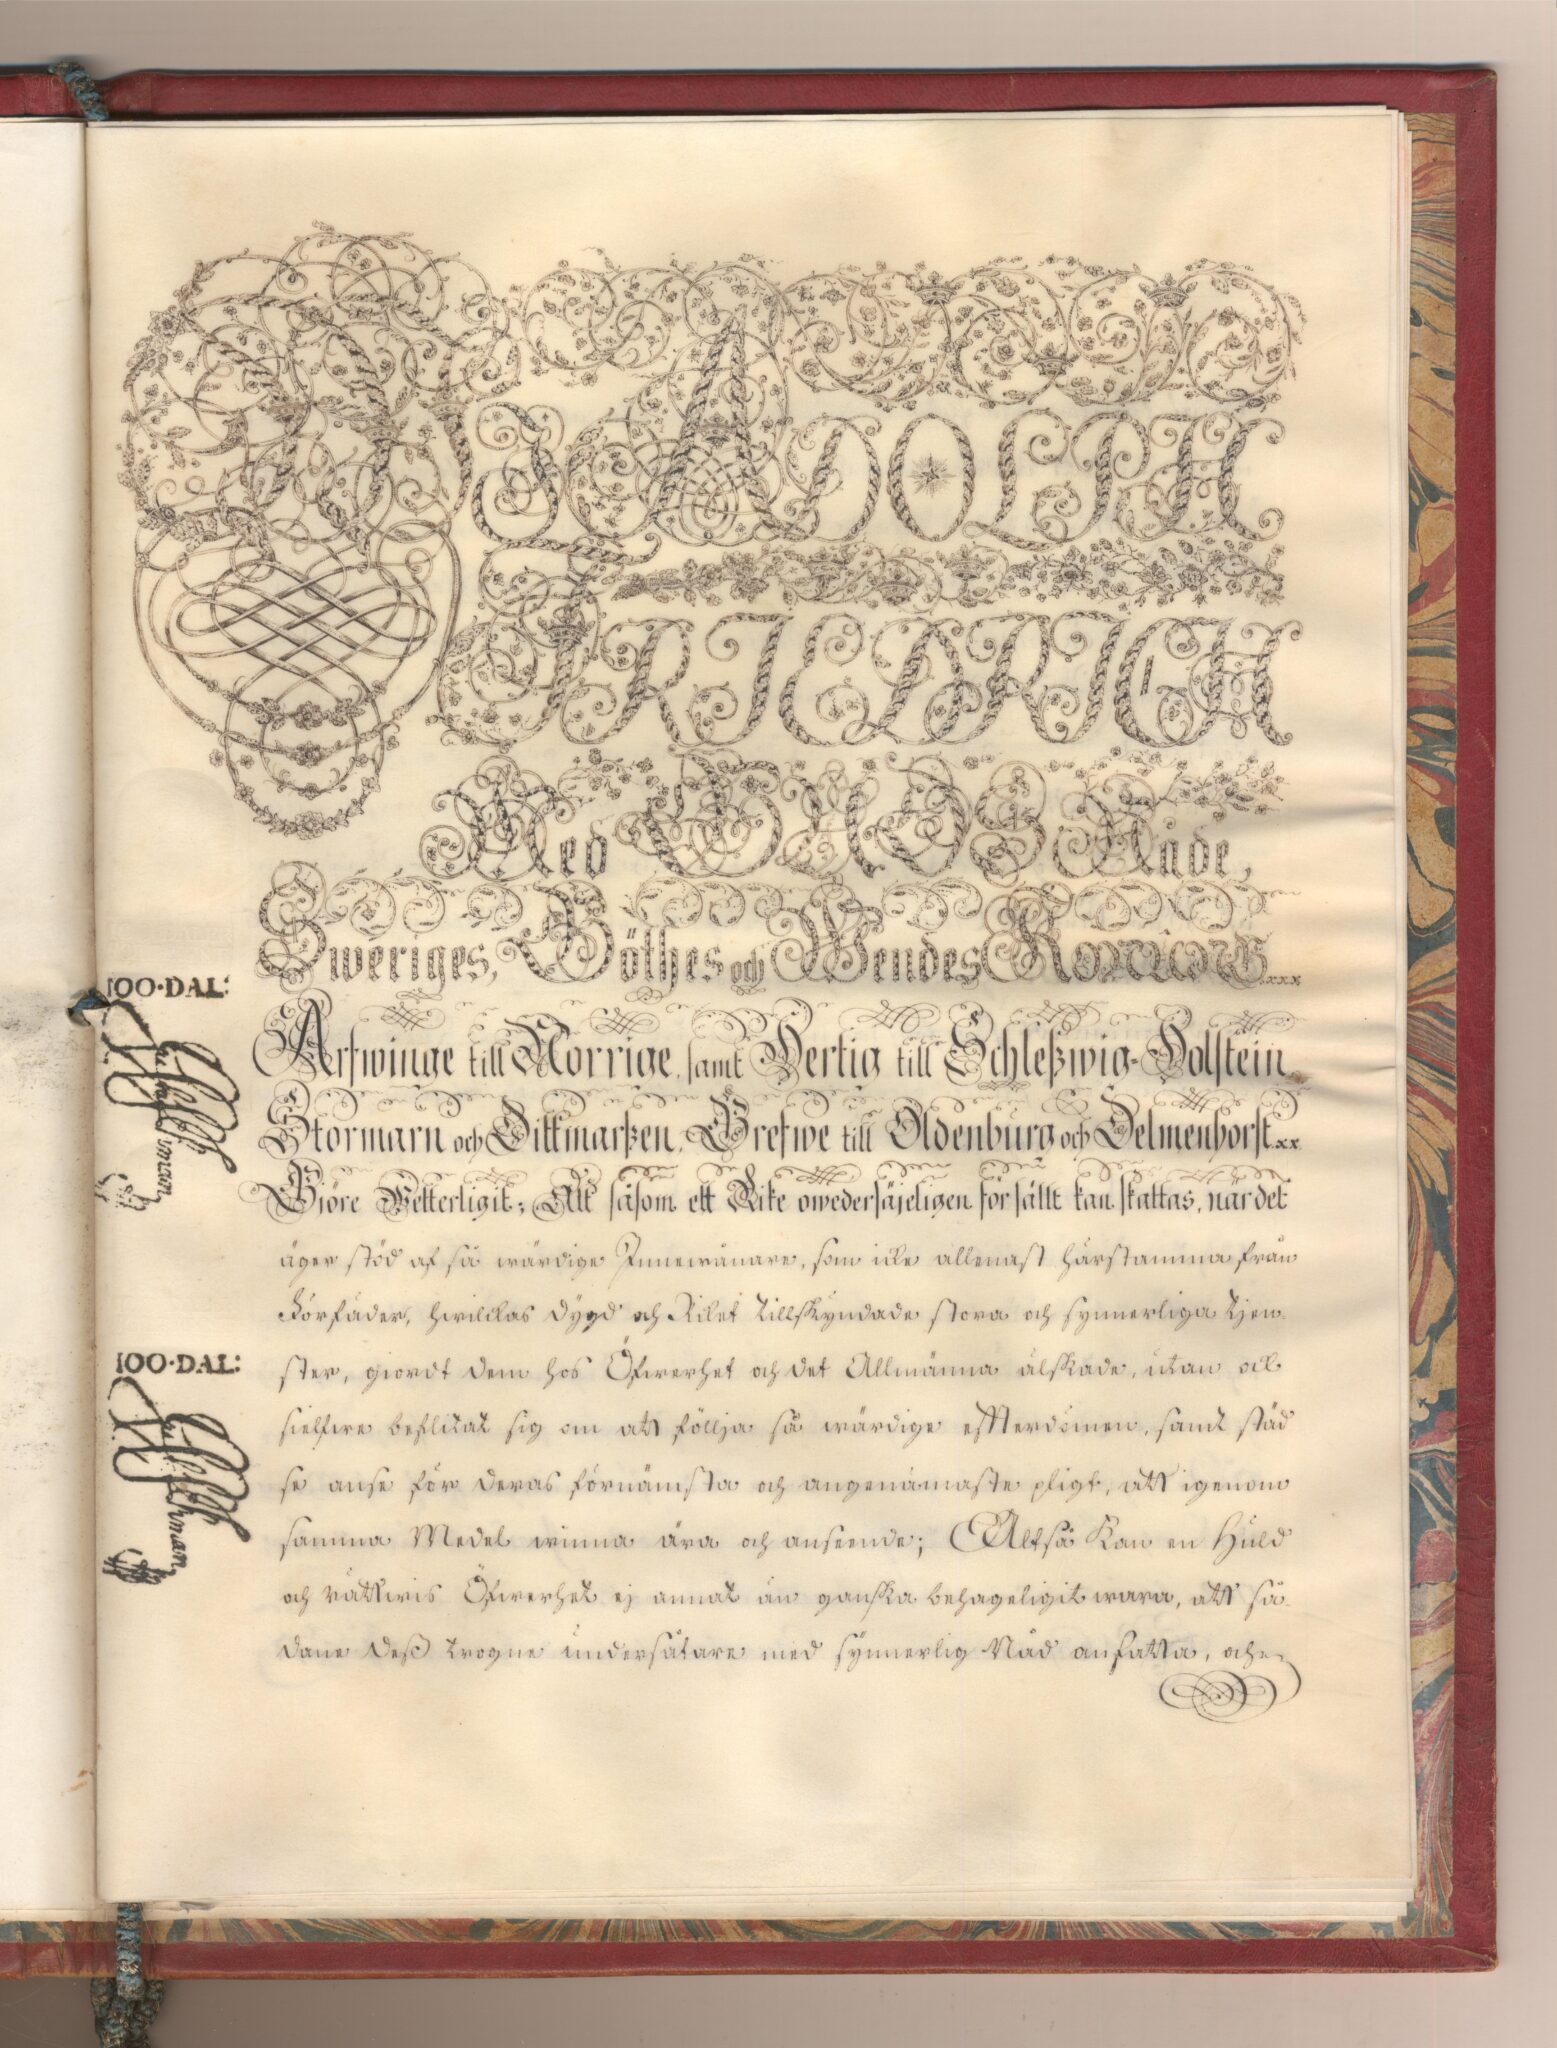 Wi ADOLPH
FRIEDRICH
Med GUDS Nåde,
Sweriges, Göthes och Wendes KONUNG xxx
Arfwinge till Norrige, samt Hertig till Schleßwig-Holstein
Stormarn och Dittmarßen, Grefwe till Oldenburg och Delmenhorst xx
Giöre Wetterligit; Att såsom ett Rike owedersäjeligen för sällt kan skattas, när det
äger stöd af så wärdige Innewånare, som icke allenast härstamma från
Förfäder, hwilckas dygd och Riket tillskyndade stora och synnerliga tjen-
ster, giordt dem hos Öfwerhet och det Allmänna älskade, utan ock
sielfwe beflitat sig om att föllja så wärdige effterdömen, samt städ
se anse för deras förnämsta och angenämaste pligt, att igenom
samma Medel winna ära och anseende; Altså kan en Huld
och rättwis Öfwerhet ej annat än ganska behageligit wara, att så-
dane deß trogne undersåtare med synnerlig Nåd anfatta, och
100·DAL:
100·DAL: